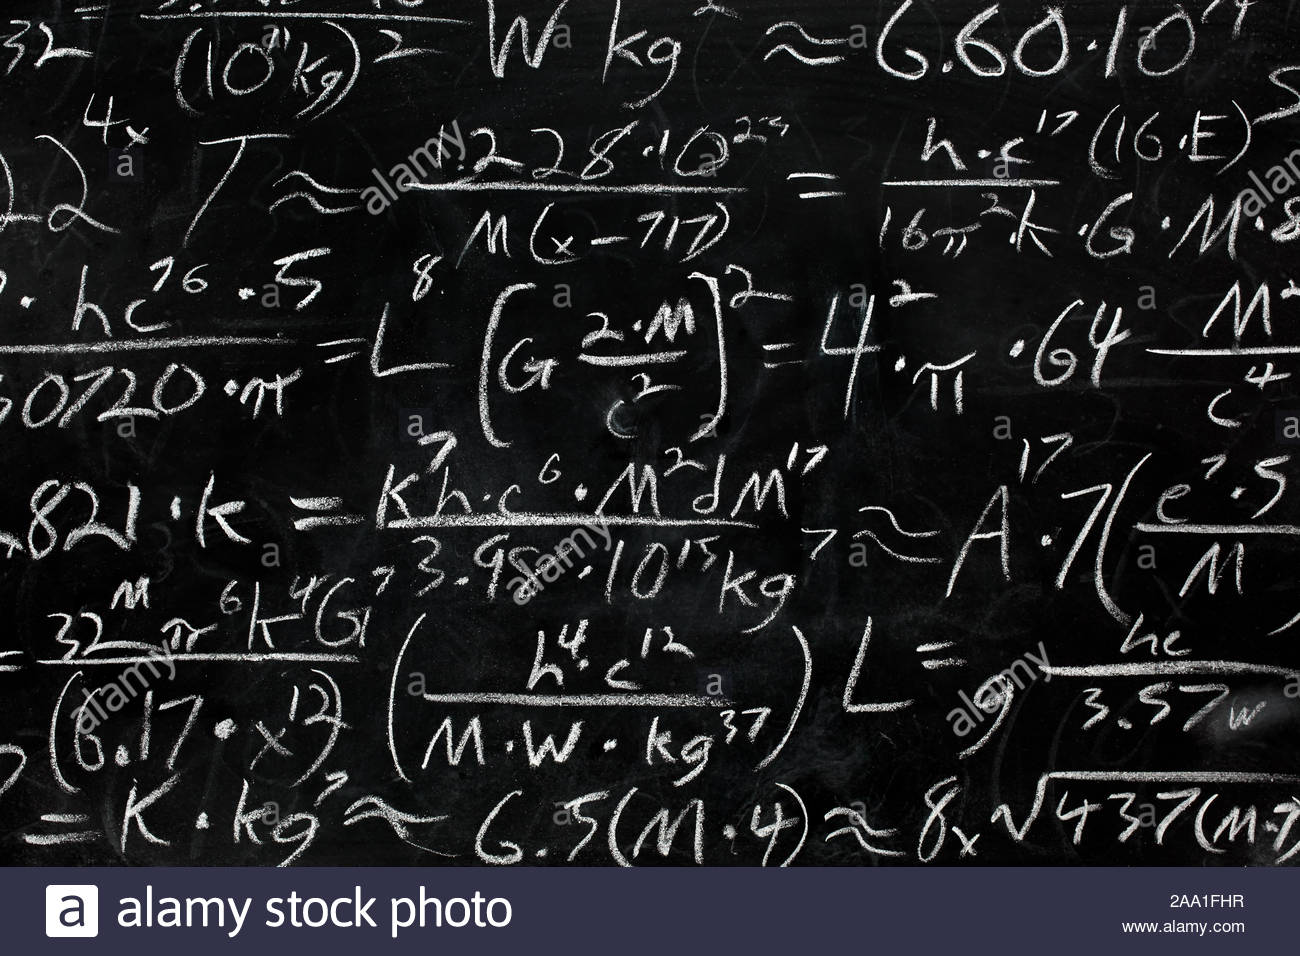 32 = (10¹¹kg)² W kg² ≈ 6.60·10
22⁴ˣ T ≈ 1.228·10²³ / M(x-717) = h·c¹⁷(16·E) / 16π²k·G·M·8
·hc⁷⁶·5 / 0720·π = L⁸ [G 2·M/c²]² = 4²·π·64 M²/c⁴
821·k = K⁷h·c⁶·M²dM¹⁷ / 3.98·10¹⁵kg⁷ ≈ A¹⁷·7(e⁷·5 / M
= 32ᴹπ⁶k⁴G⁷ / (6.17·x¹²) (h⁴·c¹² / M·W·kg³⁷) L = 9 hc / 3.57w
= K·kg⁷ ≈ 6.5(M·4) ≈ 8x√437(M·7)
alamy stock photo
2AA1FHR
www.alamy.com